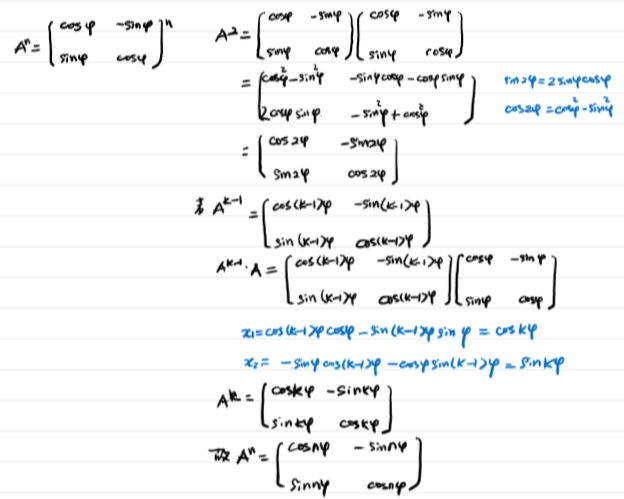 Aⁿ = [cosφ -sinφ; sinφ cosφ]ⁿ
A² = [cosφ -sinφ; sinφ cosφ][cosφ -sinφ; sinφ cosφ]
= [cos²φ-sin²φ -sinφcosφ-cosφsinφ; 2cosφsinφ -sin²φ+cos²φ]
sin2φ=2sinφcosφ
cos2φ=cos²φ-sin²φ
= [cos2φ -sin2φ; sin2φ cos2φ]
若 Aᵏ⁻¹ = [cos(k-1)φ -sin(k-1)φ; sin(k-1)φ cos(k-1)φ]
Aᵏ⁻¹·A = [cos(k-1)φ -sin(k-1)φ; sin(k-1)φ cos(k-1)φ][cosφ -sinφ; sinφ cosφ]
x₁=cos(k-1)φcosφ-sin(k-1)φsinφ=coskφ
x₂= -sinφcos(k-1)φ-cosφsin(k-1)φ=sinkφ
Aᵏ = [coskφ -sinkφ; sinkφ coskφ]
故 Aⁿ = [cosnφ -sinnφ; sinnφ cosnφ]